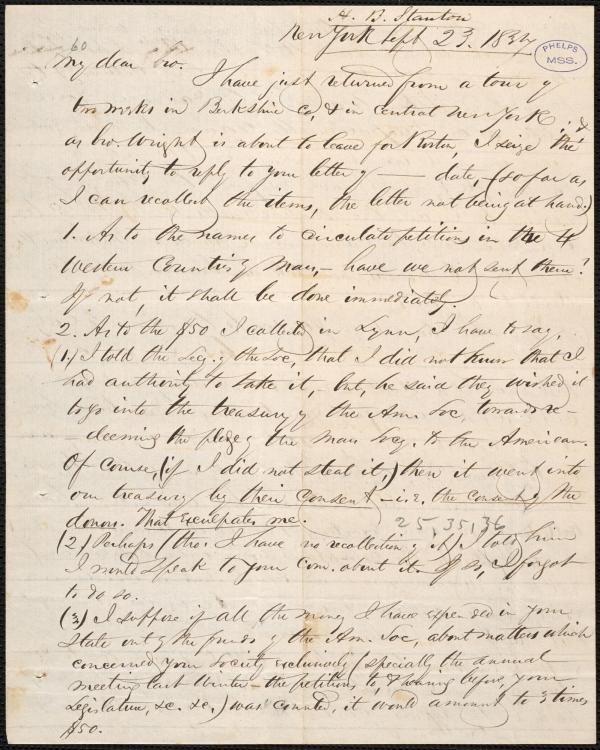 H. B. Stanton
New York Sept 23. 1837
PHELPS
MSS.
60
My dear bro.
I have just returned from a tour of
two weeks in Berkshire co, & in central New York, &
as bro. Wright is about to leave for Boston, I seize the
opportunity to reply to your letter of — date, (so far as
I can recollect the items, the letter not being at hand.)
1. As to the names to circulate petitions in the 4
Western Counties of Mass, – have we not sent them?
If not, it shall be done immediately.
2. As to the $50 I collected in Lynn, I have to say,
(1.) I told the Secy. of the Soc, that I did not know that I
had authority to take it, but, he said they wished it
to go into the treasury of the Am. Soc, towards re-
-deeming the pledge of the Mass Socy. to the American.
Of course, (if I did not steal it,) then it went into
our treasury by their consent – i.e. the consent of the
donors. That exculpates me.
25, 35, 36
(2) Perhaps (tho. I have no recollection of it) I told him
I would speak to your com. about it. If so, I forgot
to do so.
(3) I suppose if all the money I have expended in your
state out of the funds of the Am. Soc, about matters which
concerned your Society exclusively (specially the annual
meeting last winter – the petitions to, & hearing before, your
Legislature, &c. &c,) was counted, it would amount to 3 times
$50.